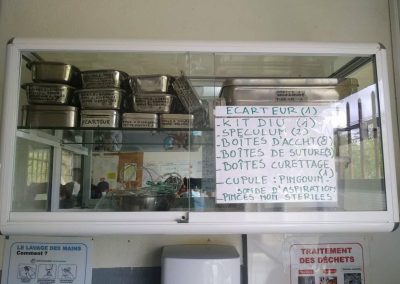 ECARTEUR
ECARTEUR (1)
KIT DIU (4)
SPECULUM (2)
BOÎTES D'ACCHT (8)
BOÎTES DE SUTURE (3)
BOÎTES CURETTAGE (1)
CUPULE : PINGOUIN -
SONDE D'ASPIRATION
PINCES NON STERILES
LE LAVAGE DES MAINS
Comment ?
TRAITEMENT
DES DÉCHETS